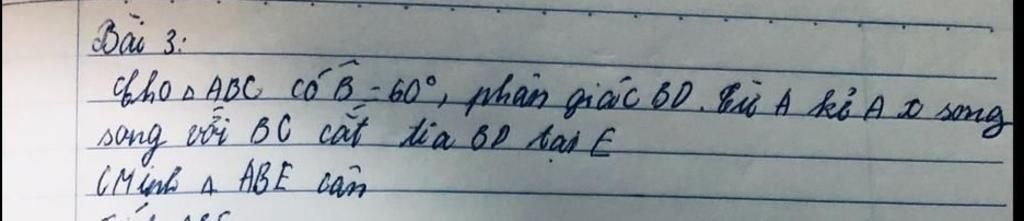 Bài 3:
Cho △ ABC có B̂ = 60°, phân giác BD. Từ A kẻ Ax song
song với BC cắt tia BD tại E
CMinh △ ABE cân